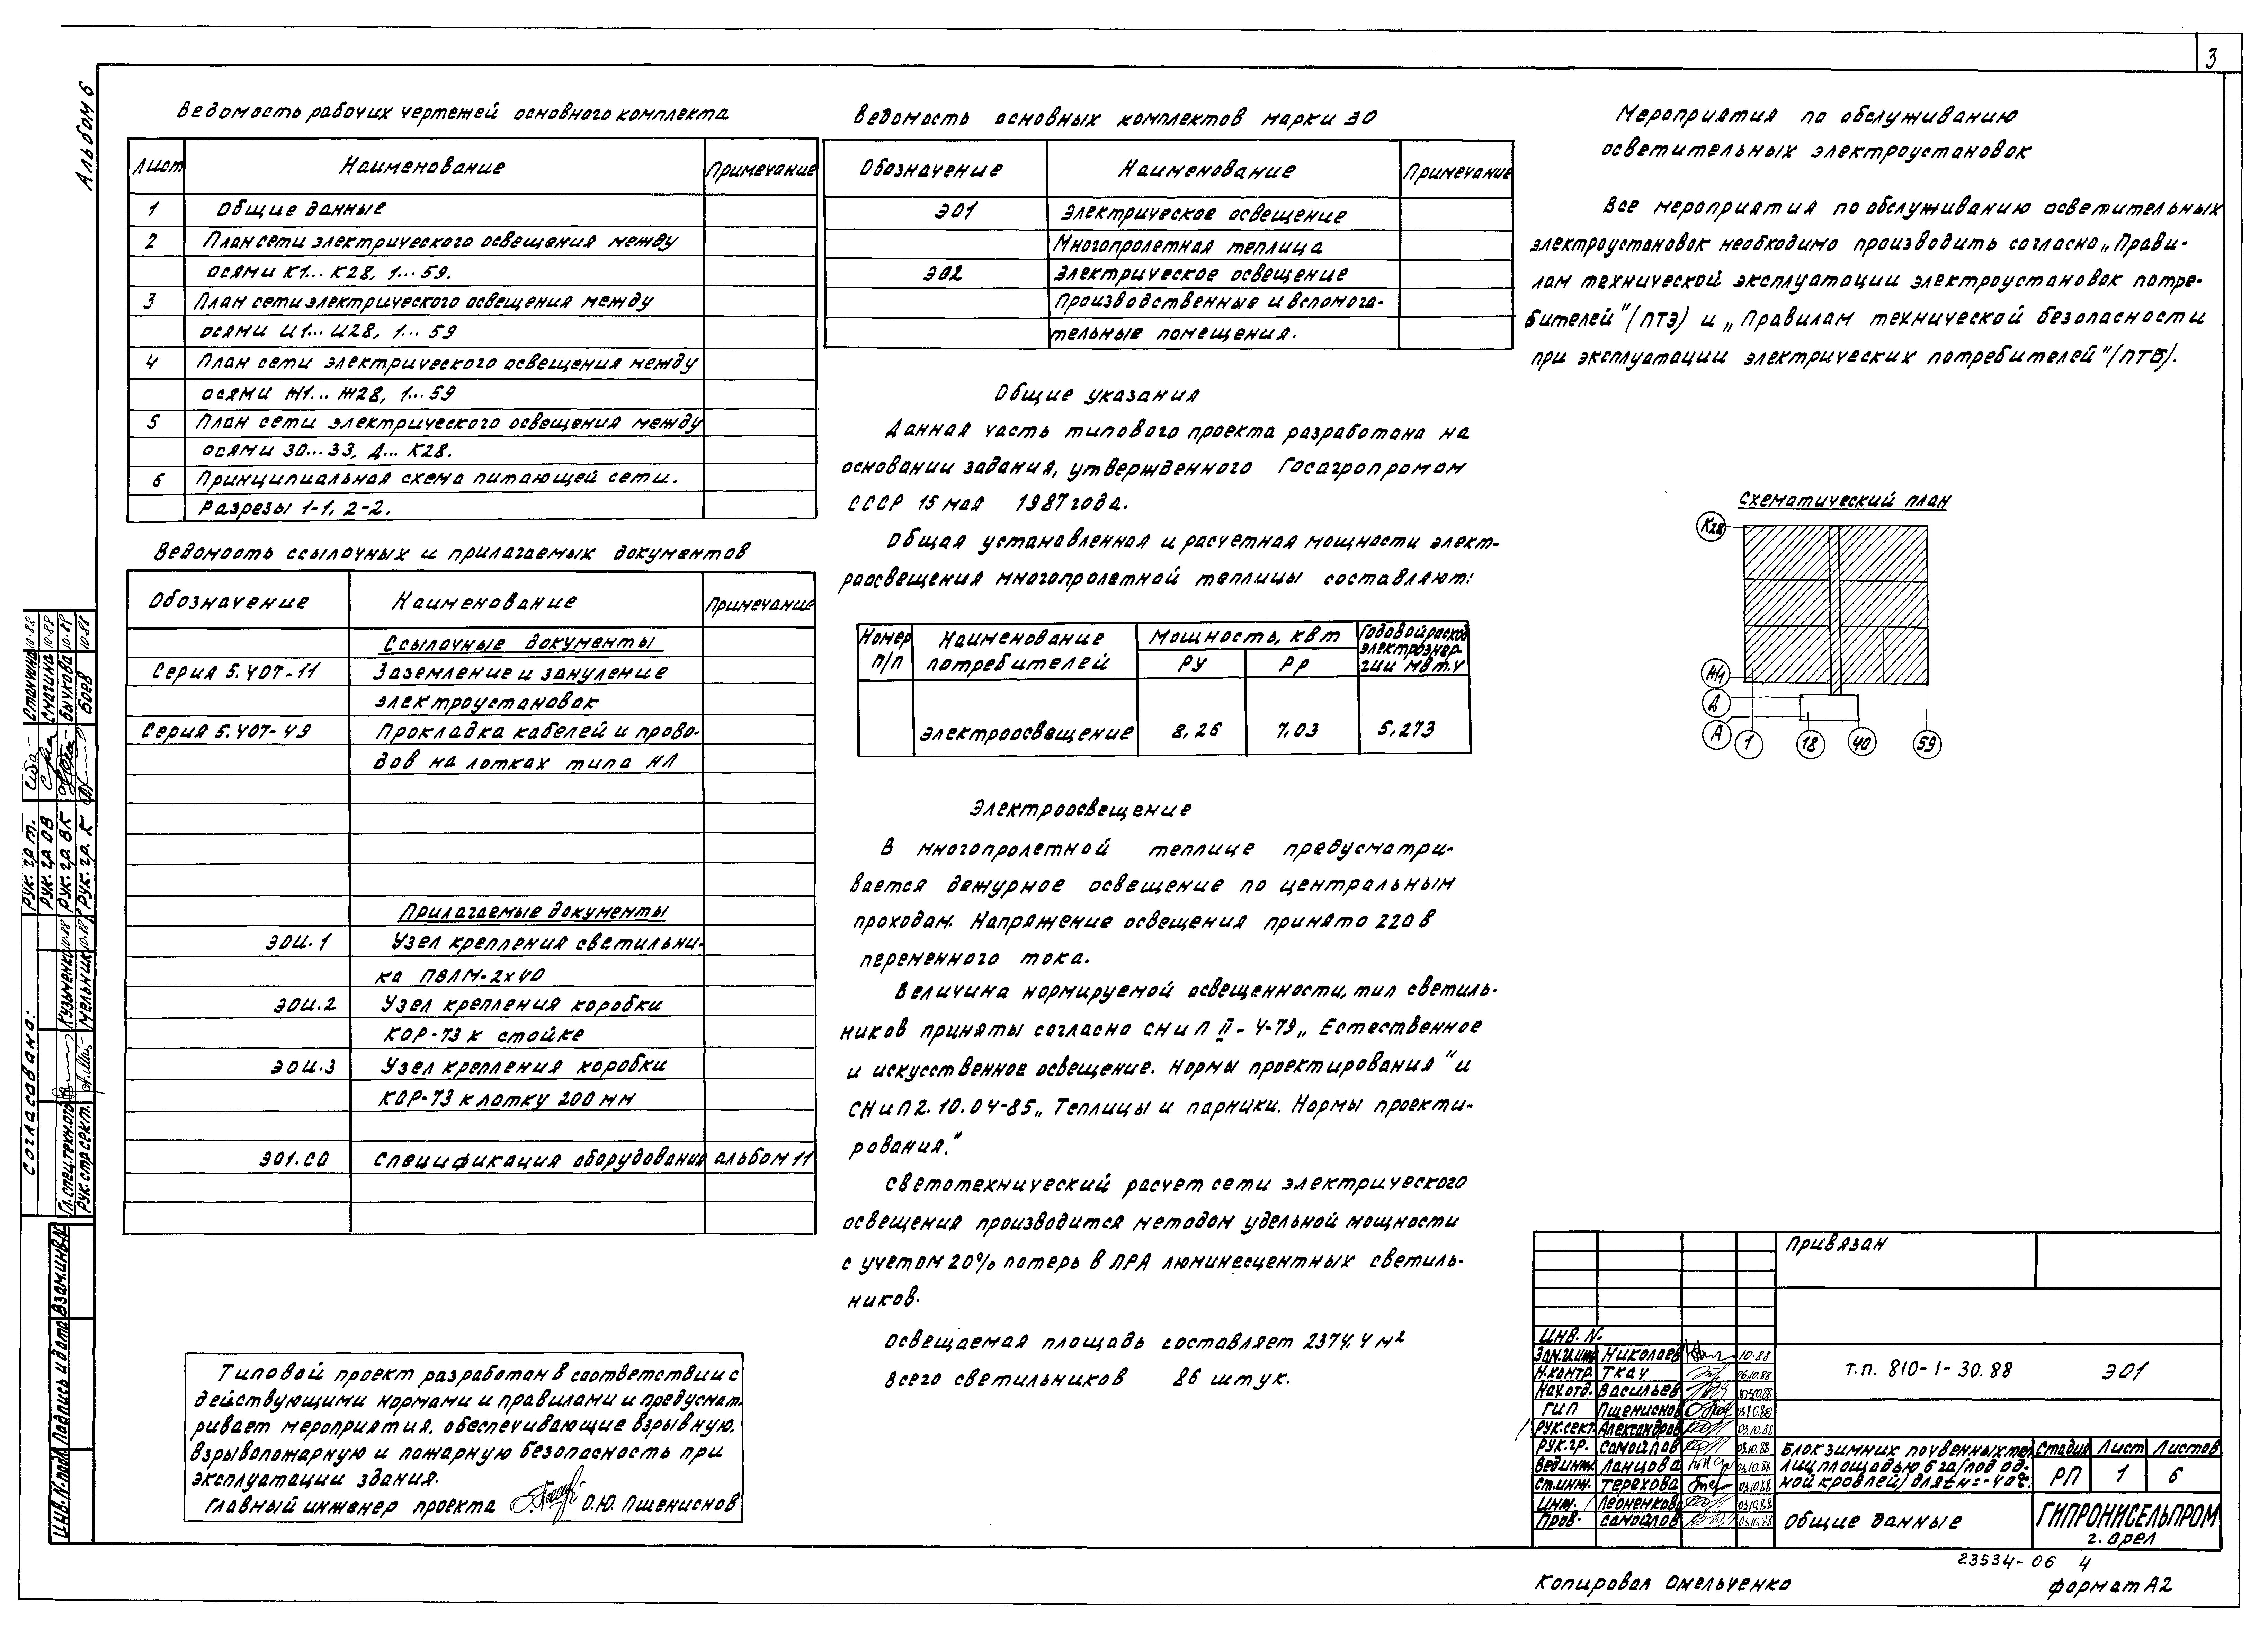 3
Альбом 6
Ведомость рабочих чертежей основного комплекта
Лист Наименование Примечание
1 Общие данные
2 План сети электрического освещения между
осями К1... К28, 1...59.
3 План сети электрического освещения между
осями И1... И28, 1... 59
4 План сети электрического освещения между
осями Ж1... Ж28, 1...59
5 План сети электрического освещения между
осями 30...33, Д... К28.
6 Принципиальная схема питающей сети.
Разрезы 1-1, 2-2.
Ведомость ссылочных и прилагаемых документов
Обозначение Наименование Примечание
Ссылочные документы
Серия 5.407-11 Заземление и зануление
электроустановок
Серия 5.407-49 Прокладка кабелей и прово-
дов на лотках типа НЛ
Прилагаемые документы
ЭОИ.1 Узел крепления светильни-
ка ПВЛМ-2х40
ЭОИ.2 Узел крепления коробки
КОР-73 к стойке
ЭОИ.3 Узел крепления коробки
КОР-73 к лотку 200 мм
ЭО1.СО Спецификация оборудования альбом 11
Типовой проект разработан в соответствии с
действующими нормами и правилами и предусмат-
ривает мероприятия, обеспечивающие взрывную,
взрывопожарную и пожарную безопасность при
эксплуатации здания.
Главный инженер проекта О.Ю. Пшениснов
Ведомость основных комплектов марки ЭО
Обозначение Наименование Примечание
ЭО1 Электрическое освещение
Многопролетная теплица
ЭО2 Электрическое освещение
Производственные и вспомога-
тельные помещения.
Общие указания
Данная часть типового проекта разработана на
основании задания, утвержденного Госагропромом
СССР 15 мая 1987 года.
Общая установленная и расчетная мощности элект-
роосвещения многопролетной теплицы составляют:
Номер п/п Наименование потребителей Мощность, квт Годовой расход электроэнер-гии Мвт.ч
Ру Рр
электроосвещение 8,26 7,03 5,273
Электроосвещение
В многопролетной теплице предусматри-
вается дежурное освещение по центральным
проходам. Напряжение освещения принято 220 в
переменного тока.
Величина нормируемой освещенности, тип светиль-
ников приняты согласно СНиП II-4-79 „Естественное
и искусственное освещение. Нормы проектирования" и
СНиП 2.10.04-85 „Теплицы и парники. Нормы проекти-
рования."
Светотехнический расчет сети электрического
освещения производится методом удельной мощности
с учетом 20% потерь в ПРА люминесцентных светиль-
ников.
Освещаемая площадь составляет 2374,4 м²
Всего светильников 86 штук.
Мероприятия по обслуживанию
осветительных электроустановок
Все мероприятия по обслуживанию осветительных
электроустановок необходимо производить согласно „Прави-
лам технической эксплуатации электроустановок потре-
бителей" (ПТЭ) и „Правилам технической безопасности
при эксплуатации электрических потребителей" (ПТБ).
Схематический план
К28
Ж/1
Д
А 1 18 40 59
Согласовано:
Гл.спец.технолог Кузьменко 10.88
Рук.стр.сект. Мельник 10.88
Рук. гр. т. 10.88
Рук. гр. ОВ Смагина 10.88
Рук. гр. ВК Бычкова 10.88
Рук. гр. К Боев 10.88
Инв.N.подл. Подпись и дата Взам.инв.N
Привязан
Инв. N.
Зам.гл.инж Николаев 10.88
Н.контр. Ткач 06.10.88
Нач.отд. Васильев
ГИП Пшениснов
Рук.сект. Александров 03.10.88
Рук.гр. Самойлов 03.10.88
Вед.инж. Ланцова 03.10.88
Ст.инж. Терехова 03.10.88
Инж. Леоненкова 03.10.88
Пров. Самойлов 03.10.88
Т.п. 810-1-30.88 ЭО1
Блок зимних почвенных теп-
лиц площадью 6 га (под од-
ной кровлей) для tн=-40°С.
Стадия Лист Листов
РП 1 6
Общие данные
ГИПРОНИСЕЛЬПРОМ
г. Орел
23534-06 4
Копировал Омельченко
формат А2